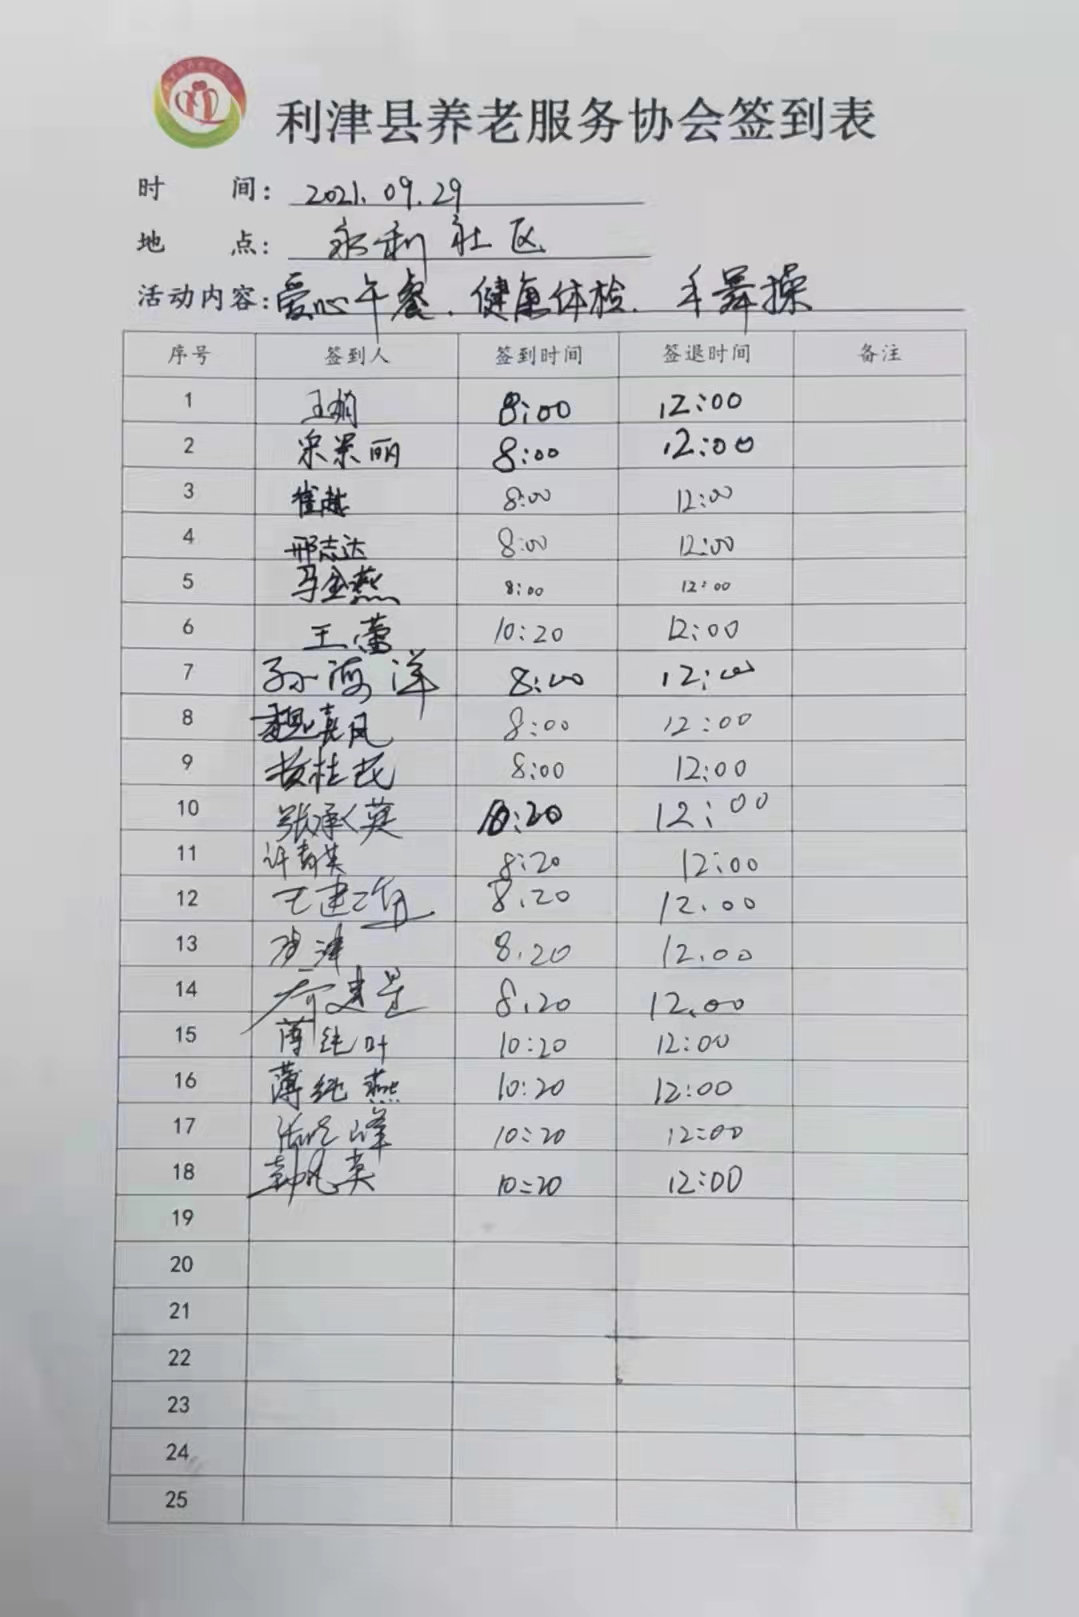 利津县养老服务协会签到表
时 间: 2021.09.29
地 点: 永利社区
活动内容: 爱心午餐.健康体检.手舞操
序号 签到人 签到时间 签退时间 备注
1 王娟 8:00 12:00
2 宋景丽 8:00 12:00
3 崔越 8:00 12:00
4 邢志达 8:00 12:00
5 马金燕 8:00 12:00
6 王蕾 10:20 12:00
7 孙海洋 8:00 12:00
8 魏嘉凤 8:00 12:00
9 桂花 8:00 12:00
10 张承英 10:20 12:00
11 许英 8:20 12:00
12 王建 8.20 12.00
13 津 8.20 12.00
14 8.20 12.00
15 薄纯叶 10:20 12:00
16 薄纯燕 10:20 12:00
17 峰 10:20 12:00
18 英 10:20 12:00
19
20
21
22
23
24
25